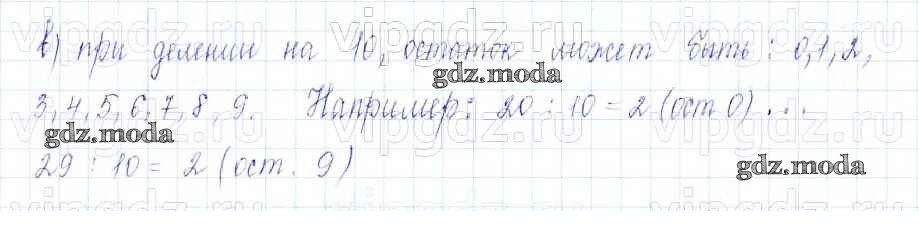 vipgdz.com vipgdz.com vipgdz.com vipgdz.com
в) при делении на 10, остаток может быть: 0,1,2,
gdz.moda
3,4,5,6,7,8,9. Например: 20 : 10 = 2 (ост 0) ...
gdz.moda
29 : 10 = 2 (ост. 9)
gdz.moda